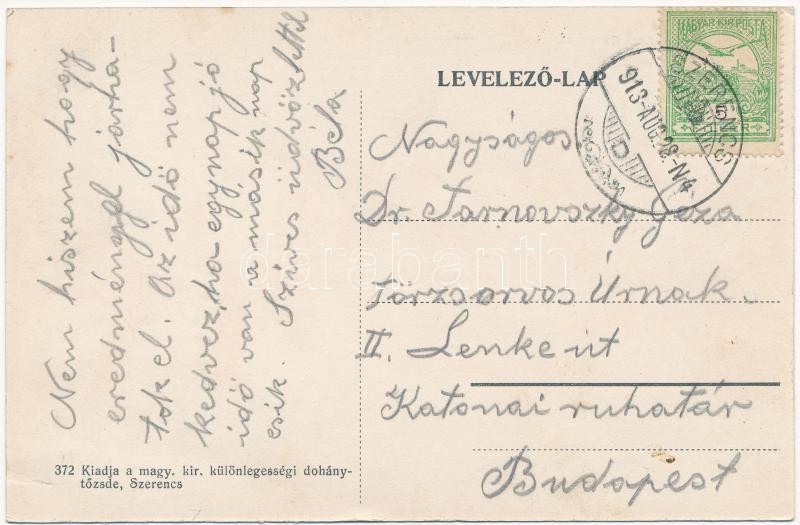 LEVELEZŐ-LAP
MAGYAR KIR. POSTA
5
SZERENCS
913-AUG.28-N4
D
Nem hiszem hogy
eredménnyel járha-
tok el. Az idő nem
kedvez, ha egy nap jó
idő van a másik nap
esik. Szíves üdvözlettel
Béla
Nagyságos
Dr. Tarnovszky Géza
törzsorvos Úrnak.
II. Lenke út
Katonai ruhatár
Budapest
372 Kiadja a magy. kir. különlegességi dohány-
tőzsde, Szerencs
darabanth